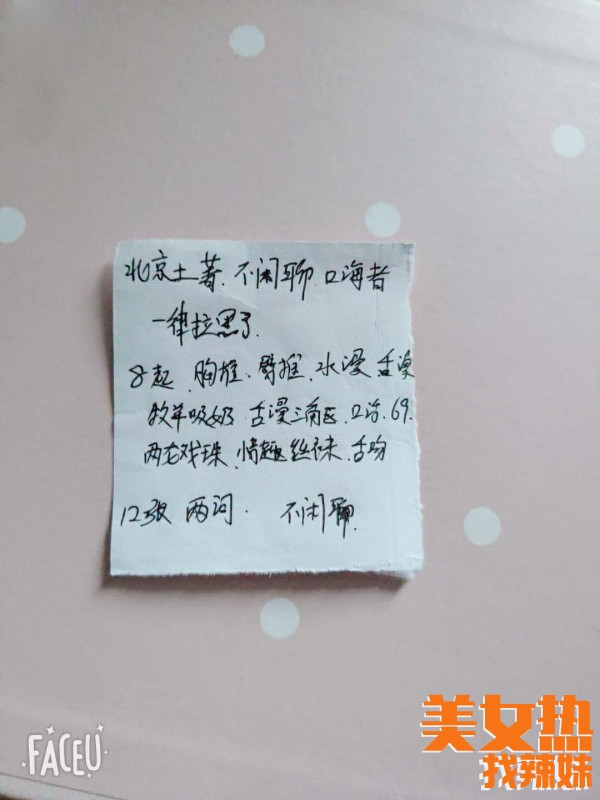 北京土著.不闲聊 口嗨者
一律拉黑了.
8起 胸推.臀推.水漫 舌漫
牧羊吸奶 舌漫三角区.口治.69.
两龙戏珠.情趣丝袜.舌吻
12张 两词. 不闲聊.
FACEU
美女热
找辣妹